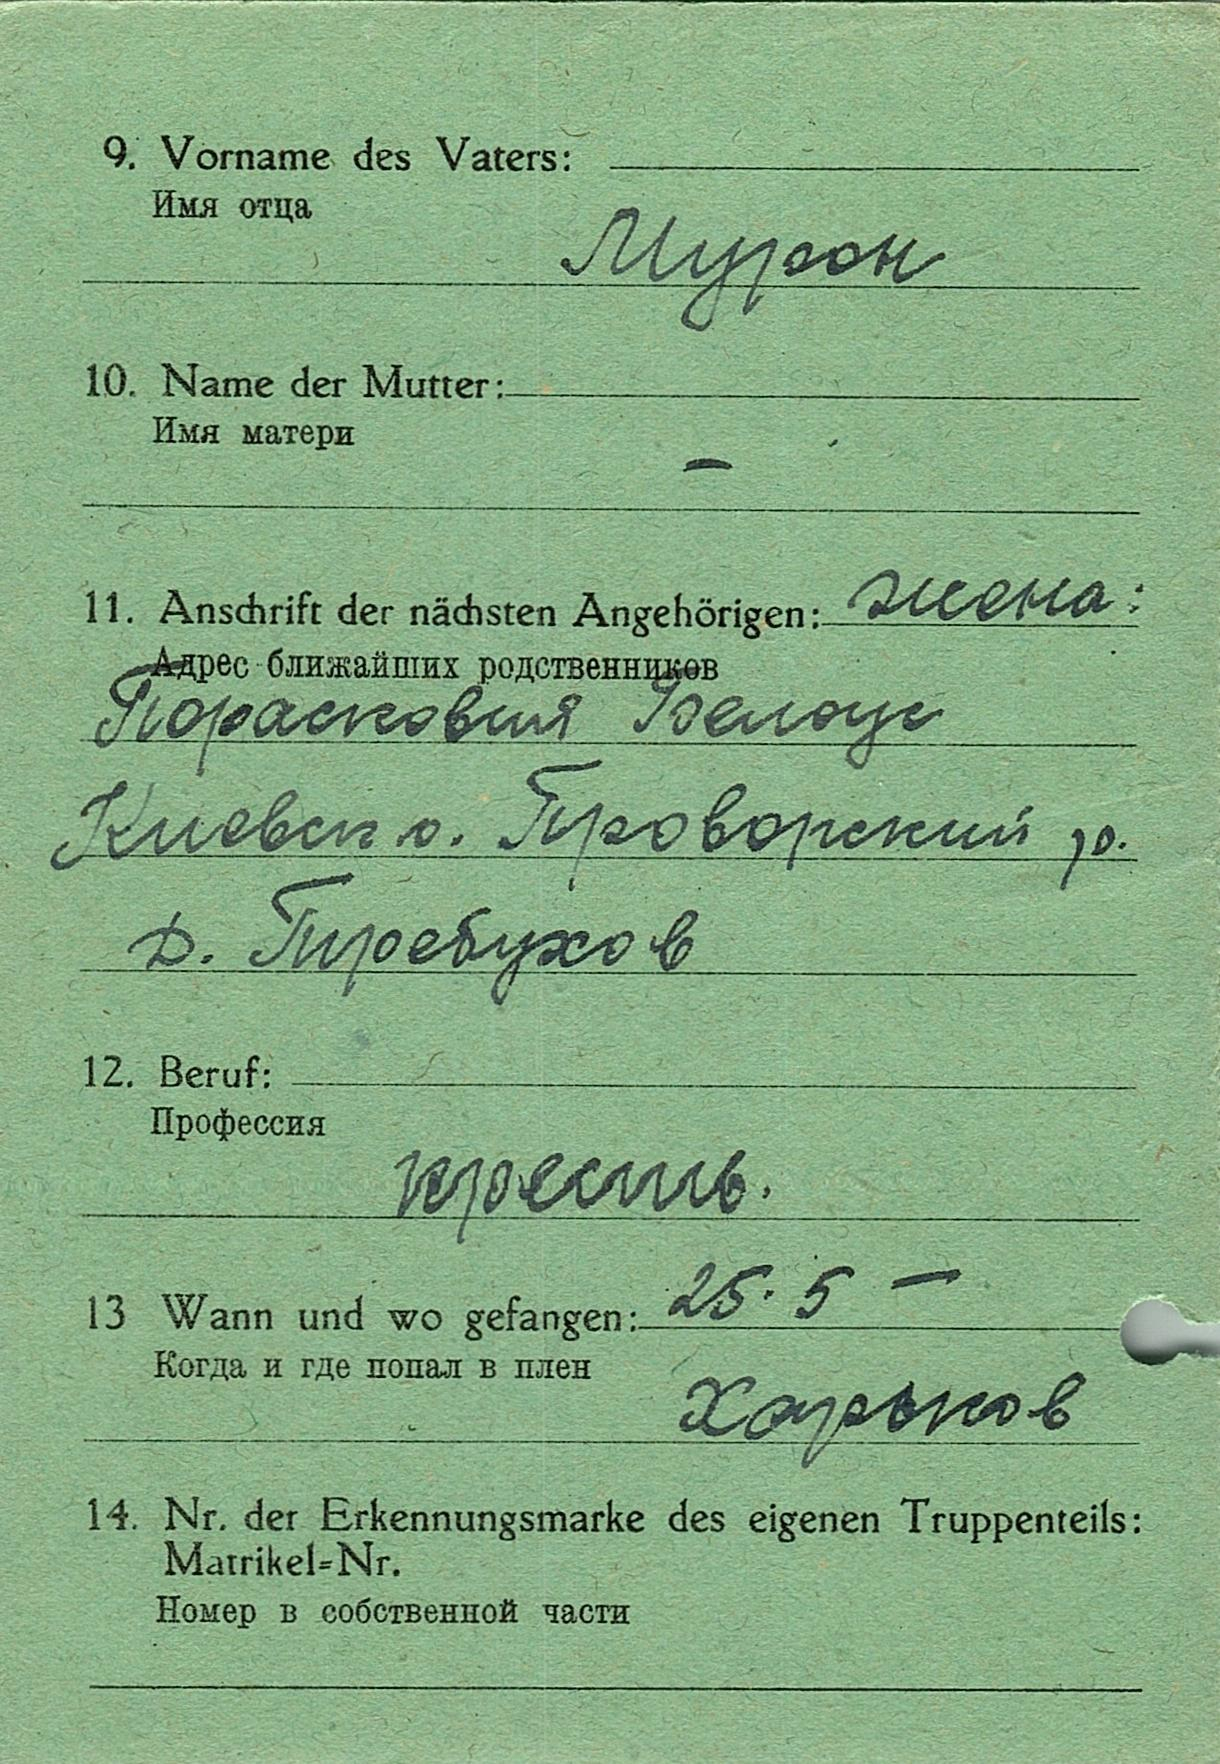 9. Vorname des Vaters:
Имя отца
Мурон
10. Name der Mutter:
Имя матери
–
11. Anschrift der nächsten Angehörigen: жена:
Адрес ближайших родственников
Порасковия Белоус
Киевск о. Броворский р.
д. Требухов
12. Beruf:
Профессия
крестЬ.
13 Wann und wo gefangen: 25. 5 –
Когда и где попал в плен
Харьков
14. Nr. der Erkennungsmarke des eigenen Truppenteils:
Matrikel=Nr.
Номер в собственной части